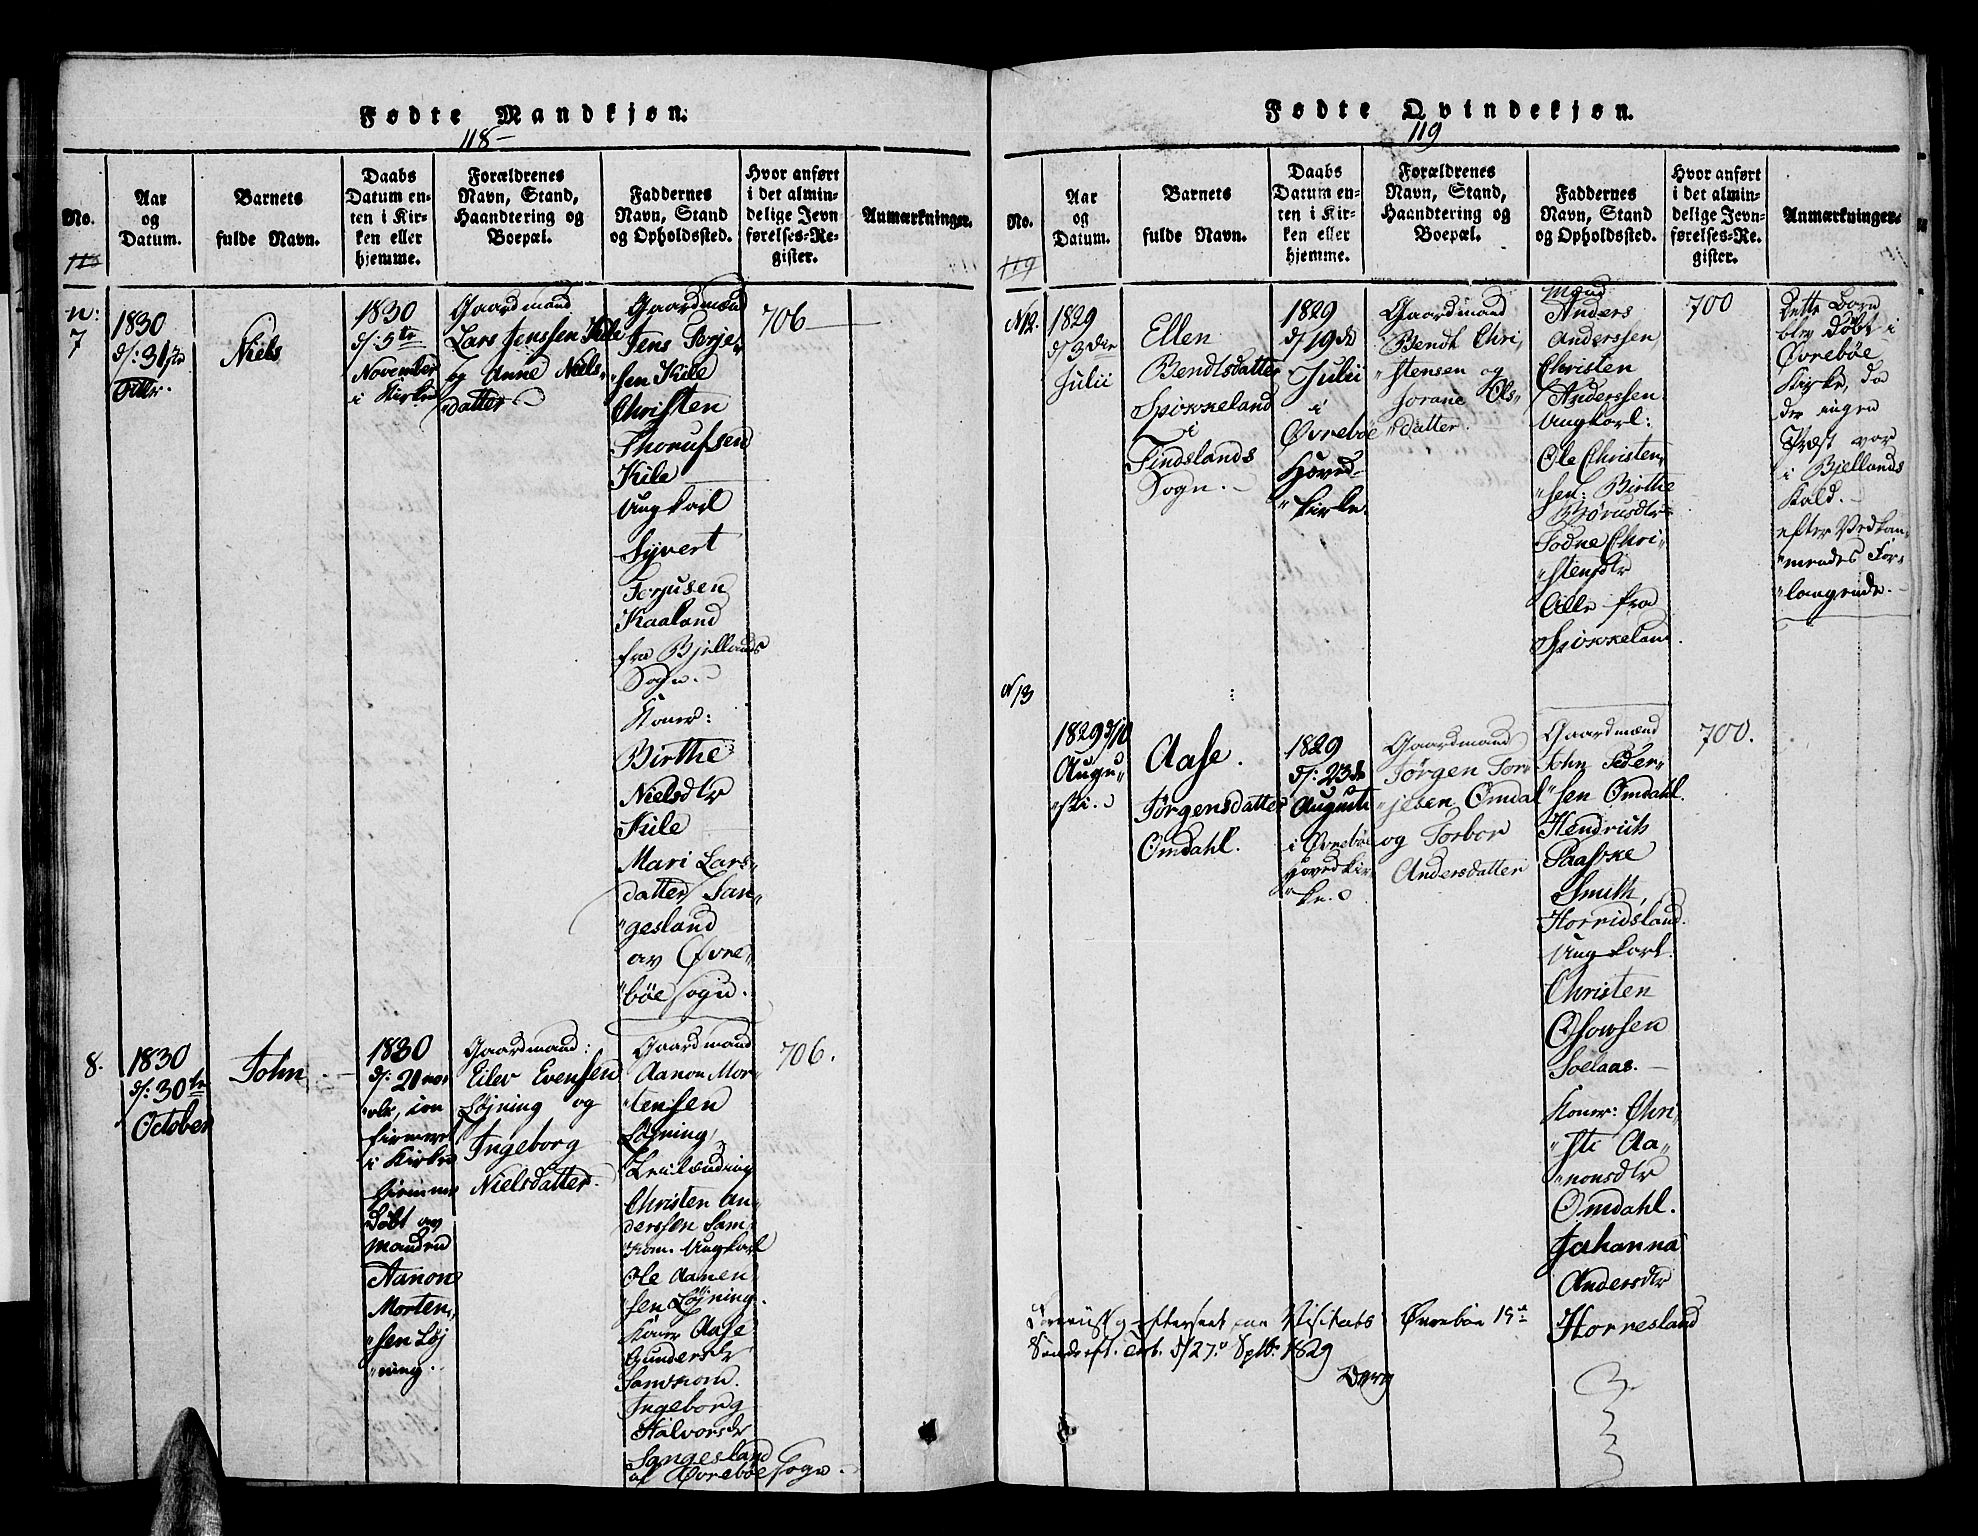 Fødte Mandkjøn.
118
No.
Aar
og
Datum.
Barnets
fulde Navn.
Daabs
Datum en-
ten i Kir-
ken eller
hjemme.
Forældrenes
Navn, Stand,
Haandtering og
Boepæl.
Faddernes
Navn, Stand
og Opholdssted.
Hvor anført
i det almin-
delige Jevn
førelses-Re-
gister.
Anmærkninger.
n:
7
1830
d: 31te
Octbr.
Niels
1830
d: 5te
November
i Kirke
Gaardmand
Lars Jenssen Kile
og Anne Niels-
datter
Gaardmænd
Jens Torje-
sen Kile
Christen
Thorufsen
Kile
Ungkarl
Syvert
Torjusen
Kaaland
fra Bjellands
Sogn.
Koner:
Birthe
Nielsdtr
Kile
Mari Lars-
datter San-
gesland
av Øvre-
bøe Sogn.
706
8.
1830
d: 30te
October
John
1830
d: 21 nov
i Kirke
hjemme
døbt av
Manden
Aanon
Morten-
sen Løj
ning.
Gaardmand:
Eilev Evensen
Løjning og
Ingeborg
Nielsdatter.
Gaardmænd
Aanon Mor-
tensen
Løjning,
Christen An-
derssen Sam-
kom. Ungkarl
Ole Aanen-
sen Løjning.
Koner Aase
Gundersdr
Samkom.
Ingeborg
Halvorsdr
Sangesland
af Øvrebøe Sogn
706.
Fødte Qvindekjøn.
119
No.
119
Aar
og
Datum.
Barnets
fulde Navn.
Daabs
Datum en-
ten i Kir-
ken eller
hjemme.
Forældrenes
Navn, Stand,
Haandtering og
Boepæl.
Faddernes
Navn, Stand
og Opholdssted.
Hvor anført
i det almin-
delige Jevn-
førelses-Re-
gister.
Anmærkninger.
N12.
1829
d/3die
Julii
Ellen
Bendtsdatter
Spikkeland
i
Findslands
Sogn.
1829
d/19de
Julii
i
Øvrebøe
Hoved-
kirke.
Gaardmand
Bendt Chri-
stensen og
Jorane Ols-
datter.
Mænd:
Anders
Anderssen
Christen
Anderssen
Ungkarl:
Ole Christen-
sen: Birthe
Bjørusdtr
Christensdtr
Alle fra
Spikkeland.
700
Dette Barn
blev døbt i
Øvrebøe
Kirke, da
der ingen
Præst var
i Bjellands
Kald.
efter Vedkom-
mendes For-
langende.
N13
1829 d/10
Augu-
sti.
Aase.
Jørgensdatter
Omdahl.
1829
d: 23de
Augusti
i Øvrebøe
Hovedkir-
ke.
Gaardmand
Jørgen Tor-
jesen Omdal
og Torbor
Andersdatter
Gaardmænd
John Peder-
sen Omdahl.
Hendrich
Paaske
Smith,
Horridsland.
Ungkarl.
Christen
Olowsen
Soelaas.
Koner: Chri-
sti Aa-
nonsdtr
Omdahl.
Johanna
Andersdtr
Horresland
700.
efterseet paa Visitats Øvrebøe 15de
Sønd. eft. Trit. d/27de Septb: 1829